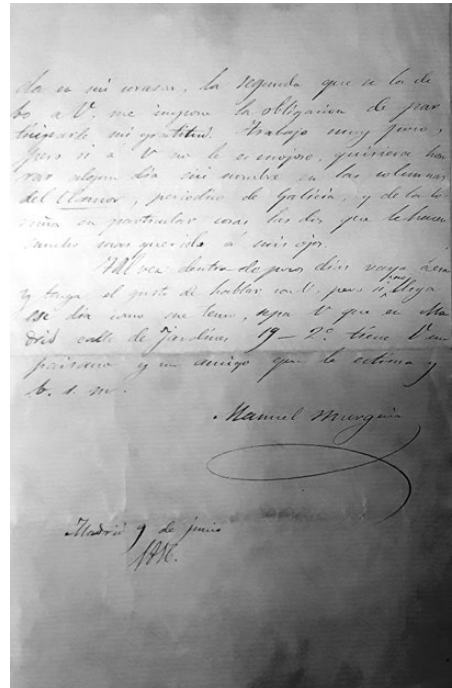 da en mi corazon, la segunda que se la de
bo, a V. me impone la obligacion de par
ticiparle mi gratitud. Trabajo muy poco,
pero si á V no le es enojoso, quisiera hon
rar algun dia mi nombre en las columnas
del Clamor, periodico de Galicia, y de la Co
ruña en particular cosas las dos que le hacen
mas querido á mis ojos.
Tal vez dentro de pocos dias vaya á esa
y tenga el gusto de hablar con V. pero si no llega
ese dia como me temo, sepa V que en Ma
drid calle de Jardines 19 – 2º tiene V un
paisano y un amigo que le estima y
b. s. m.
Manuel Murguia
Madrid 9 de junio